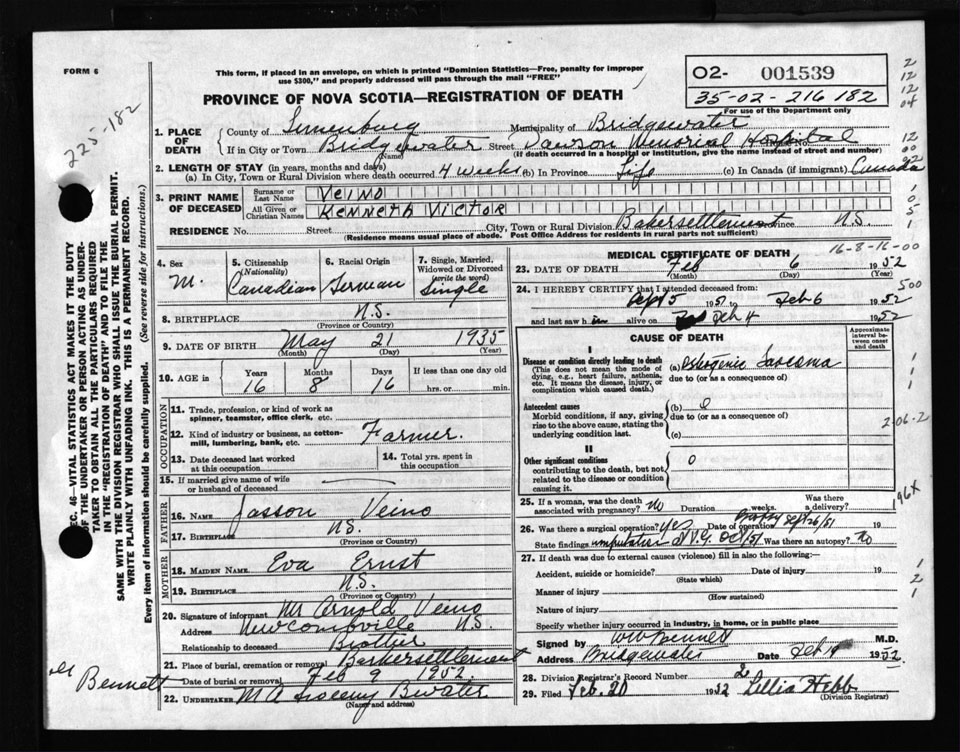 FORM 6
This form, if placed in an envelope, on which is printed "Dominion Statistics—Free, penalty for improper
use $300," and properly addressed will pass through the mail "FREE"
PROVINCE OF NOVA SCOTIA—REGISTRATION OF DEATH
O2- 001539
35-02-216 182
For use of the Department only
2
12
12
04
12
00
22
225-182
1. PLACE OF DEATH
County of Lunenburg Municipality of Bridgewater
If in City or Town Bridgewater Street Dawson Memorial Hospital
(Name) (If death occurred in a hospital or institution, give the name instead of street and number)
2. LENGTH OF STAY (in years, months and days)
(a) In City, Town or Rural Division where death occurred 4 weeks (b) In Province Life (c) In Canada (if immigrant) Canada
3. PRINT NAME OF DECEASED
Surname or Last Name Veino
All Given or Christian Names Kenneth Victor
RESIDENCE No. Street City, Town or Rural Division Bakersettlement Province N.S.
(Residence means usual place of abode. Post Office Address for residents in rural parts not sufficient)
SEC. 46—VITAL STATISTICS ACT MAKES IT THE DUTY
OF THE UNDERTAKER OR PERSON ACTING AS UNDER-
TAKER TO OBTAIN ALL THE PARTICULARS REQUIRED
IN THE "REGISTRATION OF DEATH" AND TO FILE THE
SAME WITH THE DIVISION REGISTRAR WHO SHALL ISSUE THE BURIAL PERMIT.
WRITE PLAINLY WITH UNFADING INK. THIS IS A PERMANENT RECORD.
Every item of information should be carefully supplied. (See reverse side for instructions.)
4. Sex M.
5. Citizenship (Nationality) Canadian
6. Racial Origin German
7. Single, Married, Widowed or Divorced (write the word) Single
8. BIRTHPLACE N.S.
(Province or Country)
9. DATE OF BIRTH May 21 1935
(Month) (Day) (Year)
10. AGE in Years 16 Months 8 Days 16 If less than one day old hrs. or min.
OCCUPATION
11. Trade, profession, or kind of work as spinner, teamster, office clerk, etc.
12. Kind of industry or business, as cotton-mill, lumbering, bank, etc. Farmer.
13. Date deceased last worked at this occupation
14. Total yrs. spent in this occupation
15. If married give name of wife or husband of deceased
FATHER
16. NAME Jasson Veino
17. BIRTHPLACE N.S.
(Province or Country)
MOTHER
18. MAIDEN NAME Eva Ernst
19. BIRTHPLACE N.S.
(Province or Country)
20. Signature of informant Mr Arnold Veino
Address Newcombville N.S.
Relationship to deceased Brother
21. Place of burial, cremation or removal Barkersettlement
Date of burial or removal Feb 9 1952.
22. UNDERTAKER M A B water
(Name and address)
Bennett
MEDICAL CERTIFICATE OF DEATH
16-8-16-00
23. DATE OF DEATH Feb 6 1952
(Month) (Day) (Year)
24. I HEREBY CERTIFY that I attended deceased from:
Sept 5 1951 to Feb 6 1952
and last saw him alive on Feb 4 1952
500
CAUSE OF DEATH
Approximate interval between onset and death
I
Disease or condition directly leading to death
(This does not mean the mode of dying, e.g., heart failure, asthenia, etc. It means the disease, injury, or complication which caused death.)
(a) Osteogenic Sarcoma
due to (or as a consequence of)
Antecedent causes
Morbid conditions, if any, giving rise to the above cause, stating the underlying condition last.
(b) 0
due to (or as a consequence of)
(c)
2-06-2
II
Other significant conditions
contributing to the death, but not related to the disease or condition causing it.
0
25. If a woman, was the death associated with pregnancy? No Duration weeks. Was there a delivery?
196X
26. Was there a surgical operation? Yes Date of operation Sept 26/51 19
State findings amputation V.G. Oct/51 Was there an autopsy? No
27. If death was due to external causes (violence) fill in also the following:—
Accident, suicide or homicide? Date of injury 19
(State which)
Manner of injury
(How sustained)
Nature of injury
Specify whether injury occurred in industry, in home, or in public place
Signed by WW Bennett M.D.
Address Bridgewater Date Feb 19 1952.
28. Division Registrar's Record Number 2
29. Filed Feb. 20 1952 Lillia Hebb
(Division Registrar)